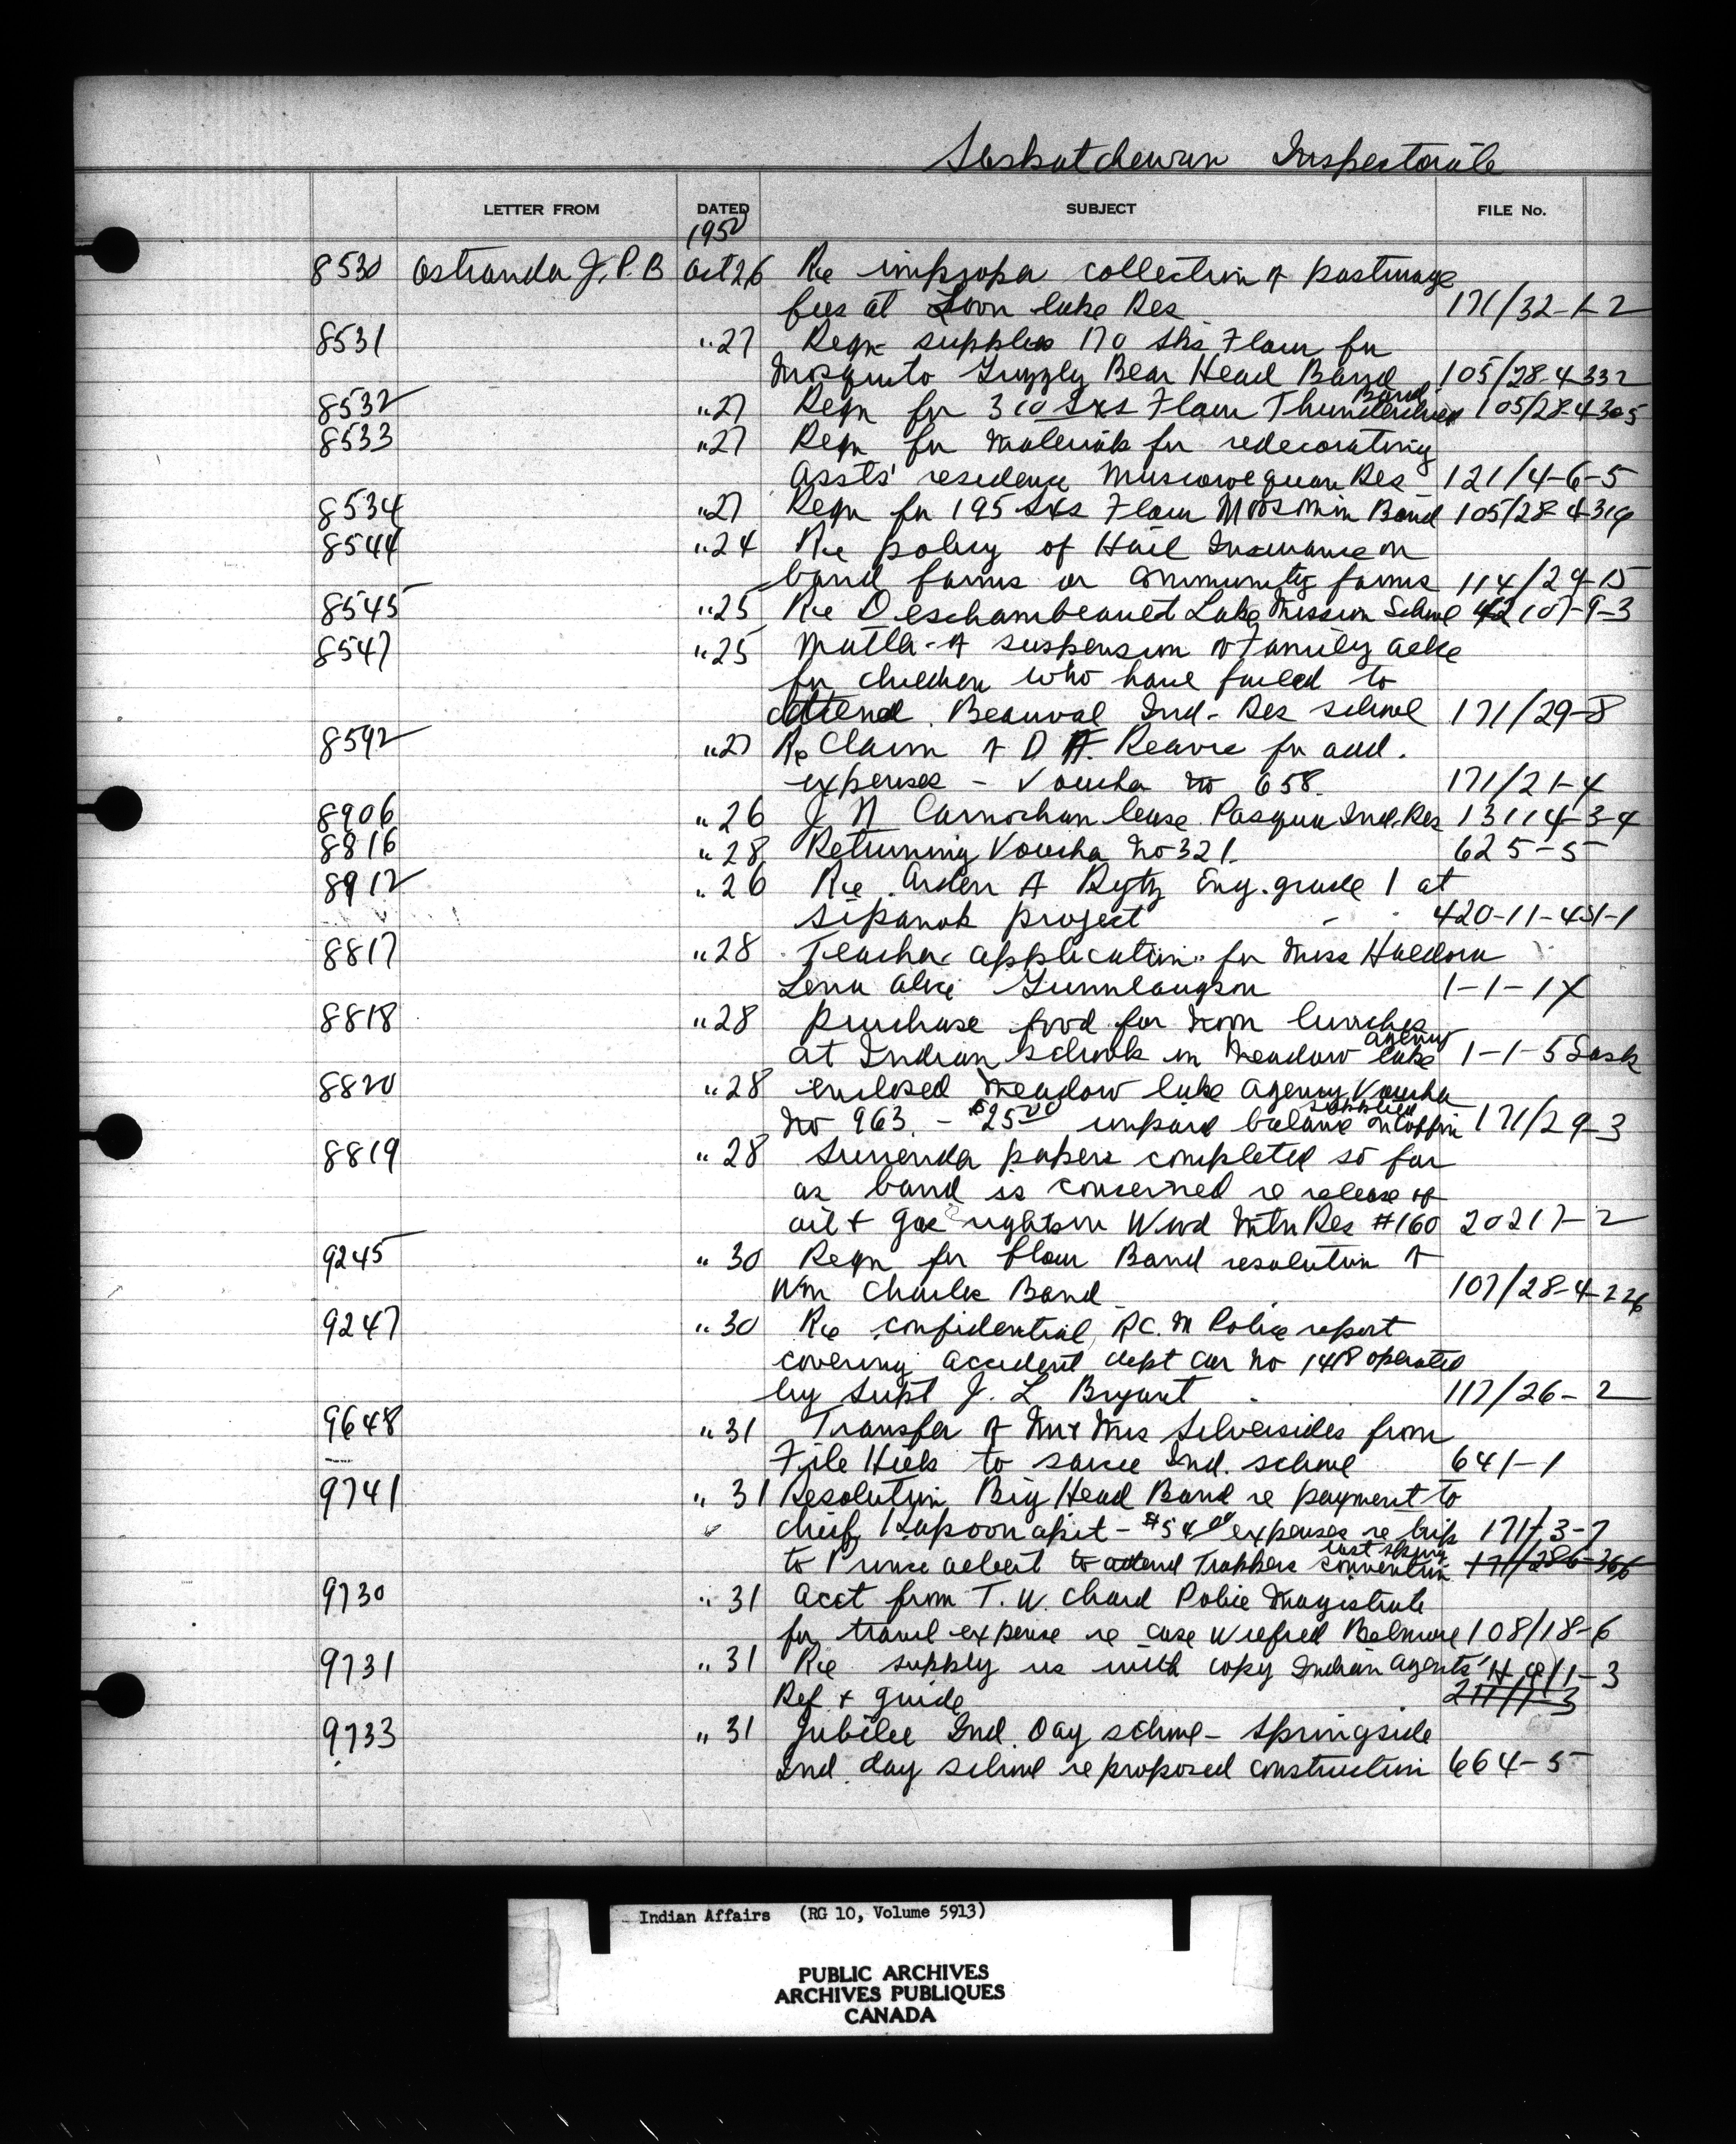 Saskatchewan Inspectorate
LETTER FROM DATED SUBJECT FILE No.
1950
8530 Ostrander J. P. B Oct 26 Re improper collection of pasturage
fees at Loon lake Res 171/32-1-2
8531 " 27 Reqn supplies 170 sks Flour for
Mosquito Grizzly Bear Head Band 105/28-4-332
Band
8532 " 27 Reqn for 300 Sxs Flour Thunderchild 105/28-4-305
8533 " 27 Reqn for Materials for redecorating
Assts' residence Muscowequan Res 121/4-6-5
8534 " 27 Reqn for 195 Sxs Flour Moosmin Band 105/28-4-319
8544 " 24 Re policy of Hail Insurance on
band farms or community farms 114/29-15
8545 " 25 Re Deschambeault Lake Mission School 42107-9-3
8547 " 25 Matter of suspension of Family Allce
for children who have failed to
attend Beauval Ind. Res school 171/29-8
8592 " 27 Re Claim of D F. Reavie for add.
expenses - Voucher no 658. 171/21-4
8906 " 26 J N Carnochan lease Pasqua Ind. Res 13114-3-4
8816 " 28 Returning Voucher No 321. 625-5
8912 " 26 Re Arden A Eng. grade 1 at
Sipanok project 420-11-451-1
8817 " 28 Teacher application for Miss Haldora
Lena Alice Gunnlaugson 1-1-1X
8818 " 28 purchase food for noon lunches
agency
at Indian schools in Meadow lake 1-1-5 Sask
8820 " 28 enclosed Meadow lake agency Voucher
supplied
no 963. - $25.00 unpaid balance on Coffin 171/29-3
8819 " 28 Surrender papers completed so far
as band is concerned re release of
oil + gas rights on Wood Mtn Res #160 20217-2
9245 " 30 Reqn for flour Band resolution of
Wm Charles Band 107/28-4-226
9247 " 30 Re confidential R.C. M Police report
covering accident dept car no 1418 operated
by Supt J. L Bryant 117/26-2
9648 " 31 Transfer of Mr + Mrs Silversides from
File Hills to Sarcee Ind. school 641-1
9741 " 31 Resolution Big Head Band re payment to
chief - $54.00 expenses re trip 171/3-7
last spring
to Prince Albert to attend Trappers convention 171/286-366
9730 " 31 Acct from T. W. Chard Police Magistrate
for travel expense re case Wilfred Belmore 108/18-6
9731 " 31 Re supply us with copy Indian Agents' H.Q/1-3
Ref + guide 211/1-3
9733 " 31 Jubilee Ind. Day school - Springside
Ind. day school re proposed construction 664-5
Indian Affairs (RG 10, Volume 5913)
PUBLIC ARCHIVES
ARCHIVES PUBLIQUES
CANADA